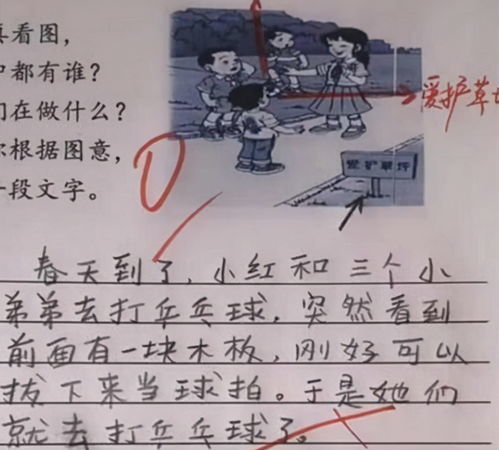 真看图，
中都有谁？
们在做什么？
你根据图意，
一段文字。
爱护草坪
爱护草坪
春天到了，小红和三个小
弟弟去打乒乓球，突然看到
前面有一块木板，刚好可以
拔下来当球拍。于是她们
就去打乒乓球了。